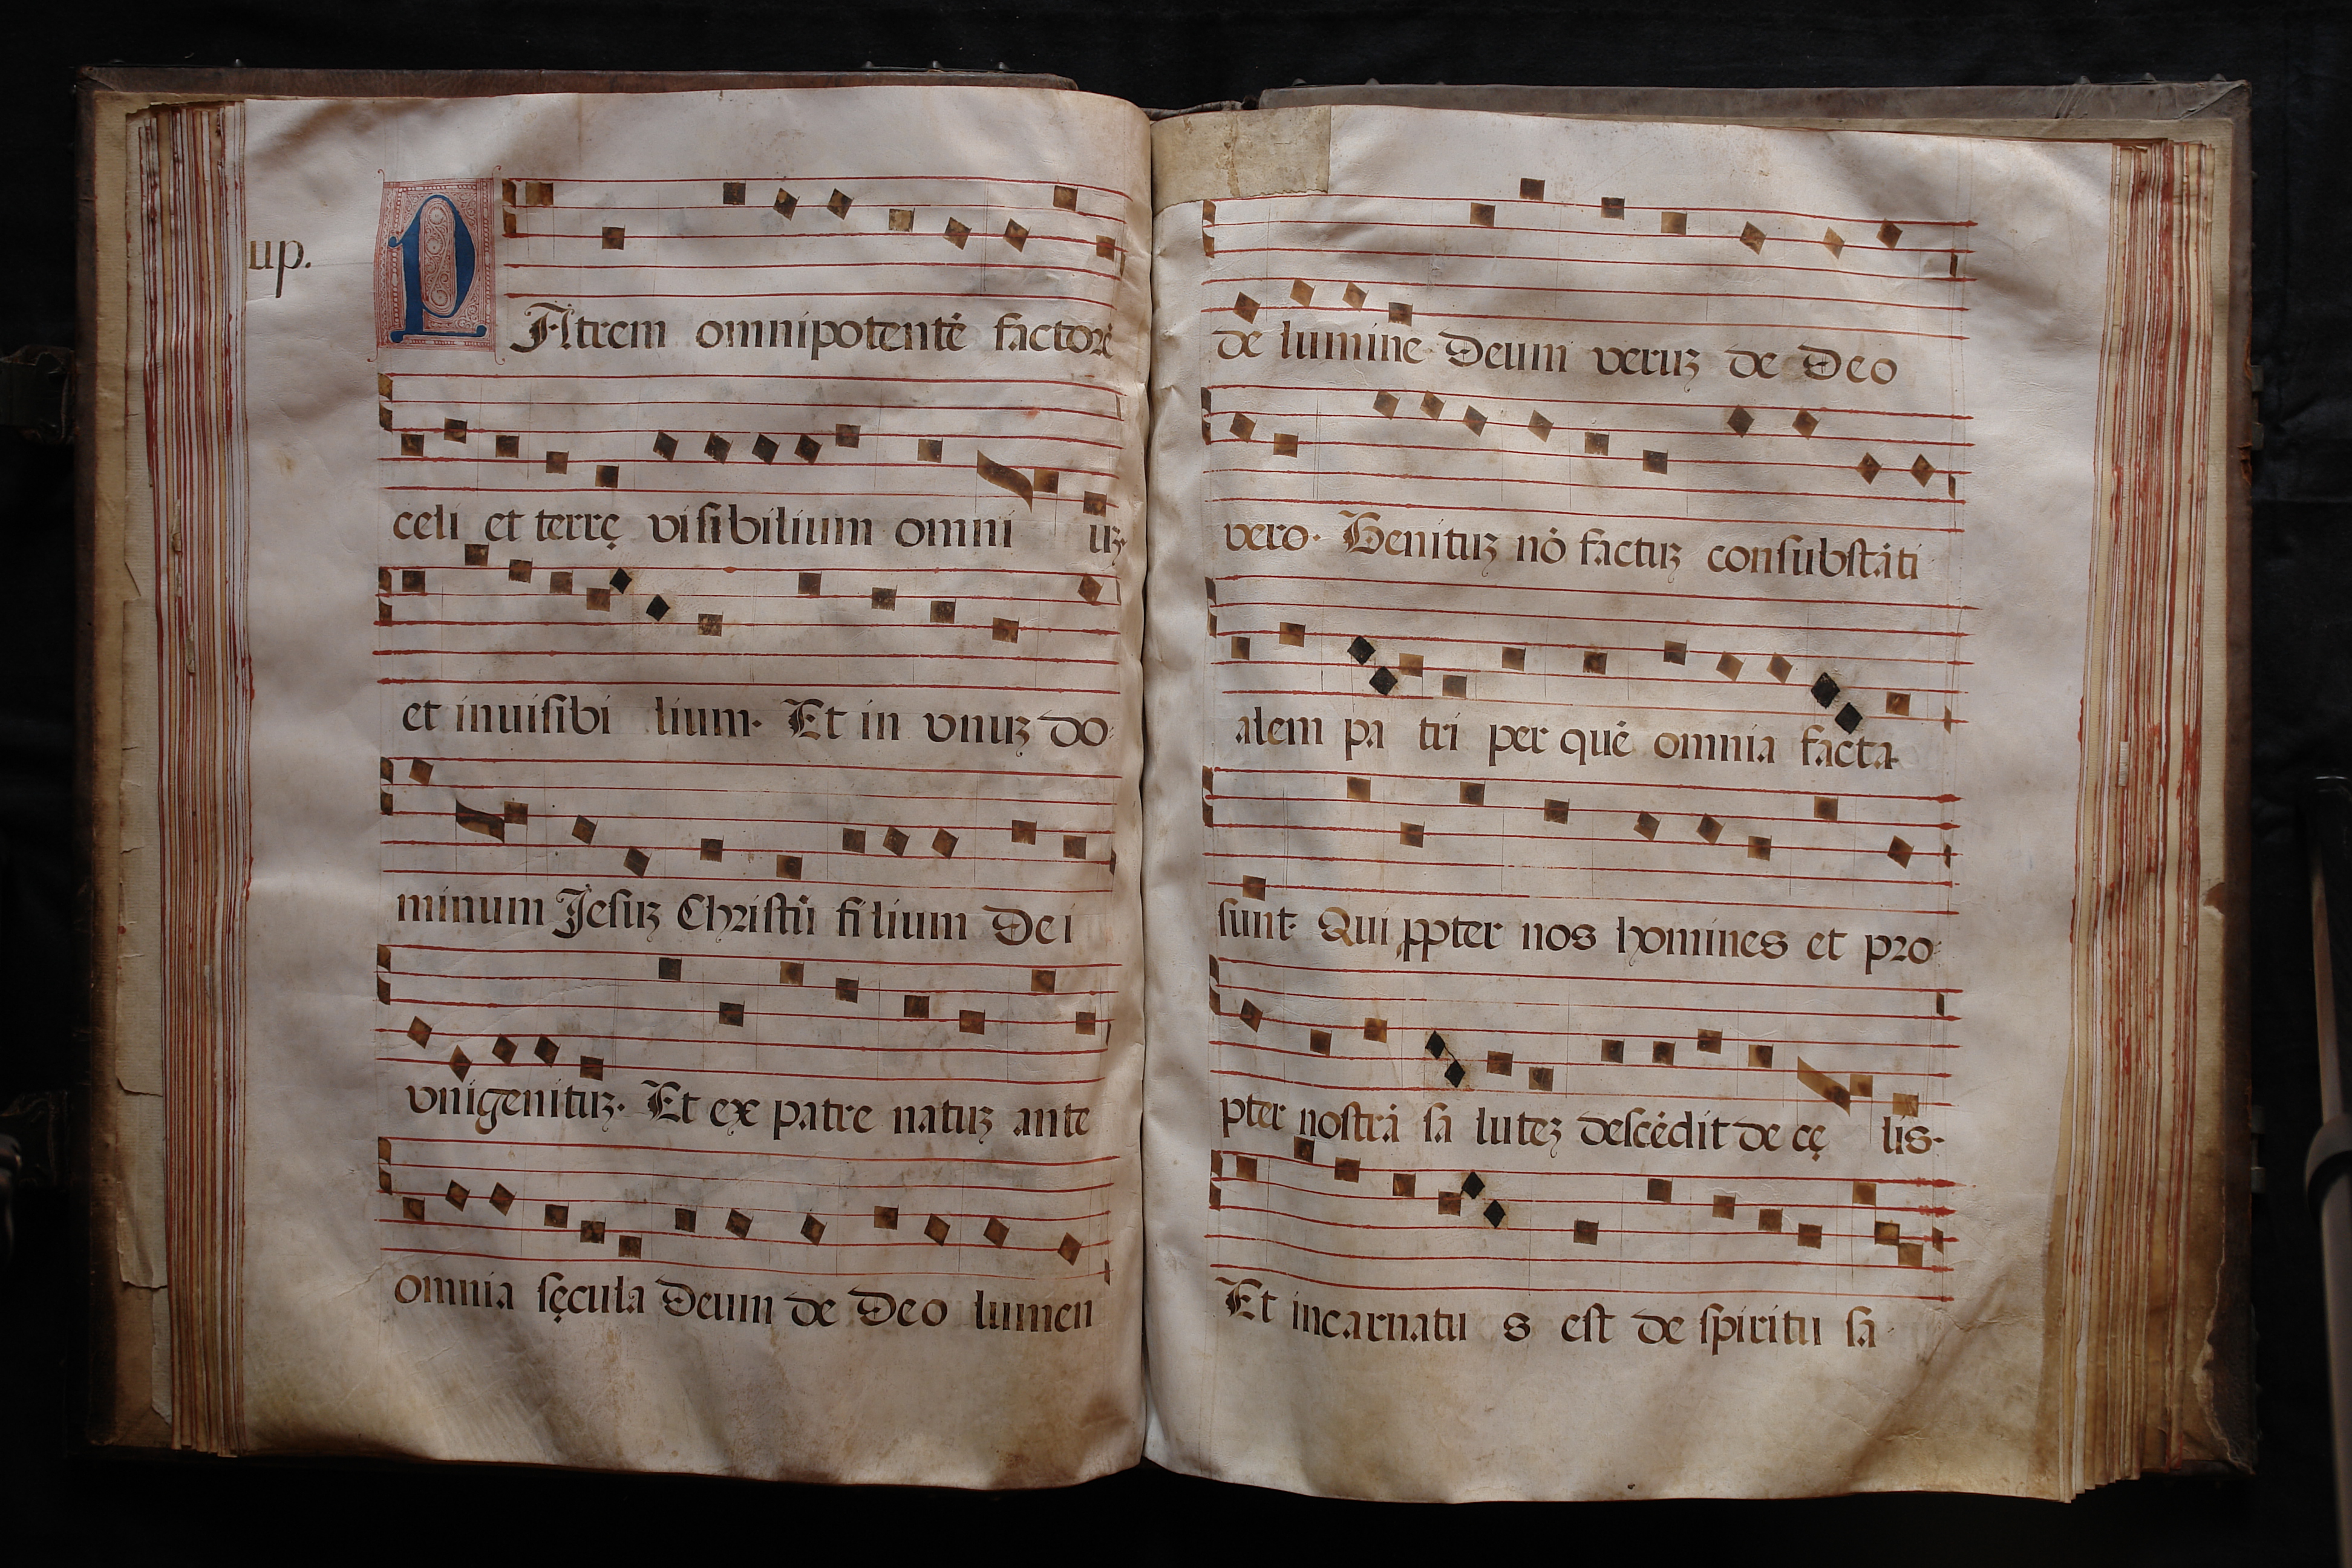 up.
PAtrem omnipotentē factorē
celi et terrę visibilium omni uꝫ
et inuisibi lium. Et in vnuꝫ do
minum Jesuꝫ Christū filium Dei
vnigenituꝫ. Et ex patre natuꝫ ante
omnia sęcula Deum de Deo lumen
de lumine Deum veruꝫ de Deo
vero. Genituꝫ nō factuꝫ consubstāti
alem pa tri per quē omnia facta
sunt. Qui ꝓpter nos homines et pro
pter nostrā sa luteꝫ descēdit de cę lis.
Et incarnatu s est de spiritu sa